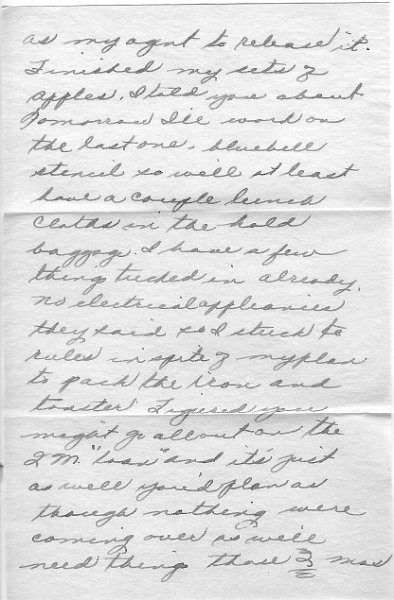 as my agnt to release it.
Finished my sets of
apples. I told you about
Tomorrow I'll work on
the last one. bluebell
stencil so we'll at least
have a couple lunch
cloths in the hold
baggage. I have a few
thing tucked in already.
No electrical appliances
they said so I stuck to
rules in spite of my plan
to pack the iron and
toaster. Figured you
might go all out on the
"loan" and it's just
as well you'd plan as
though nothing were
coming over as we'll
need thing those 2 mos